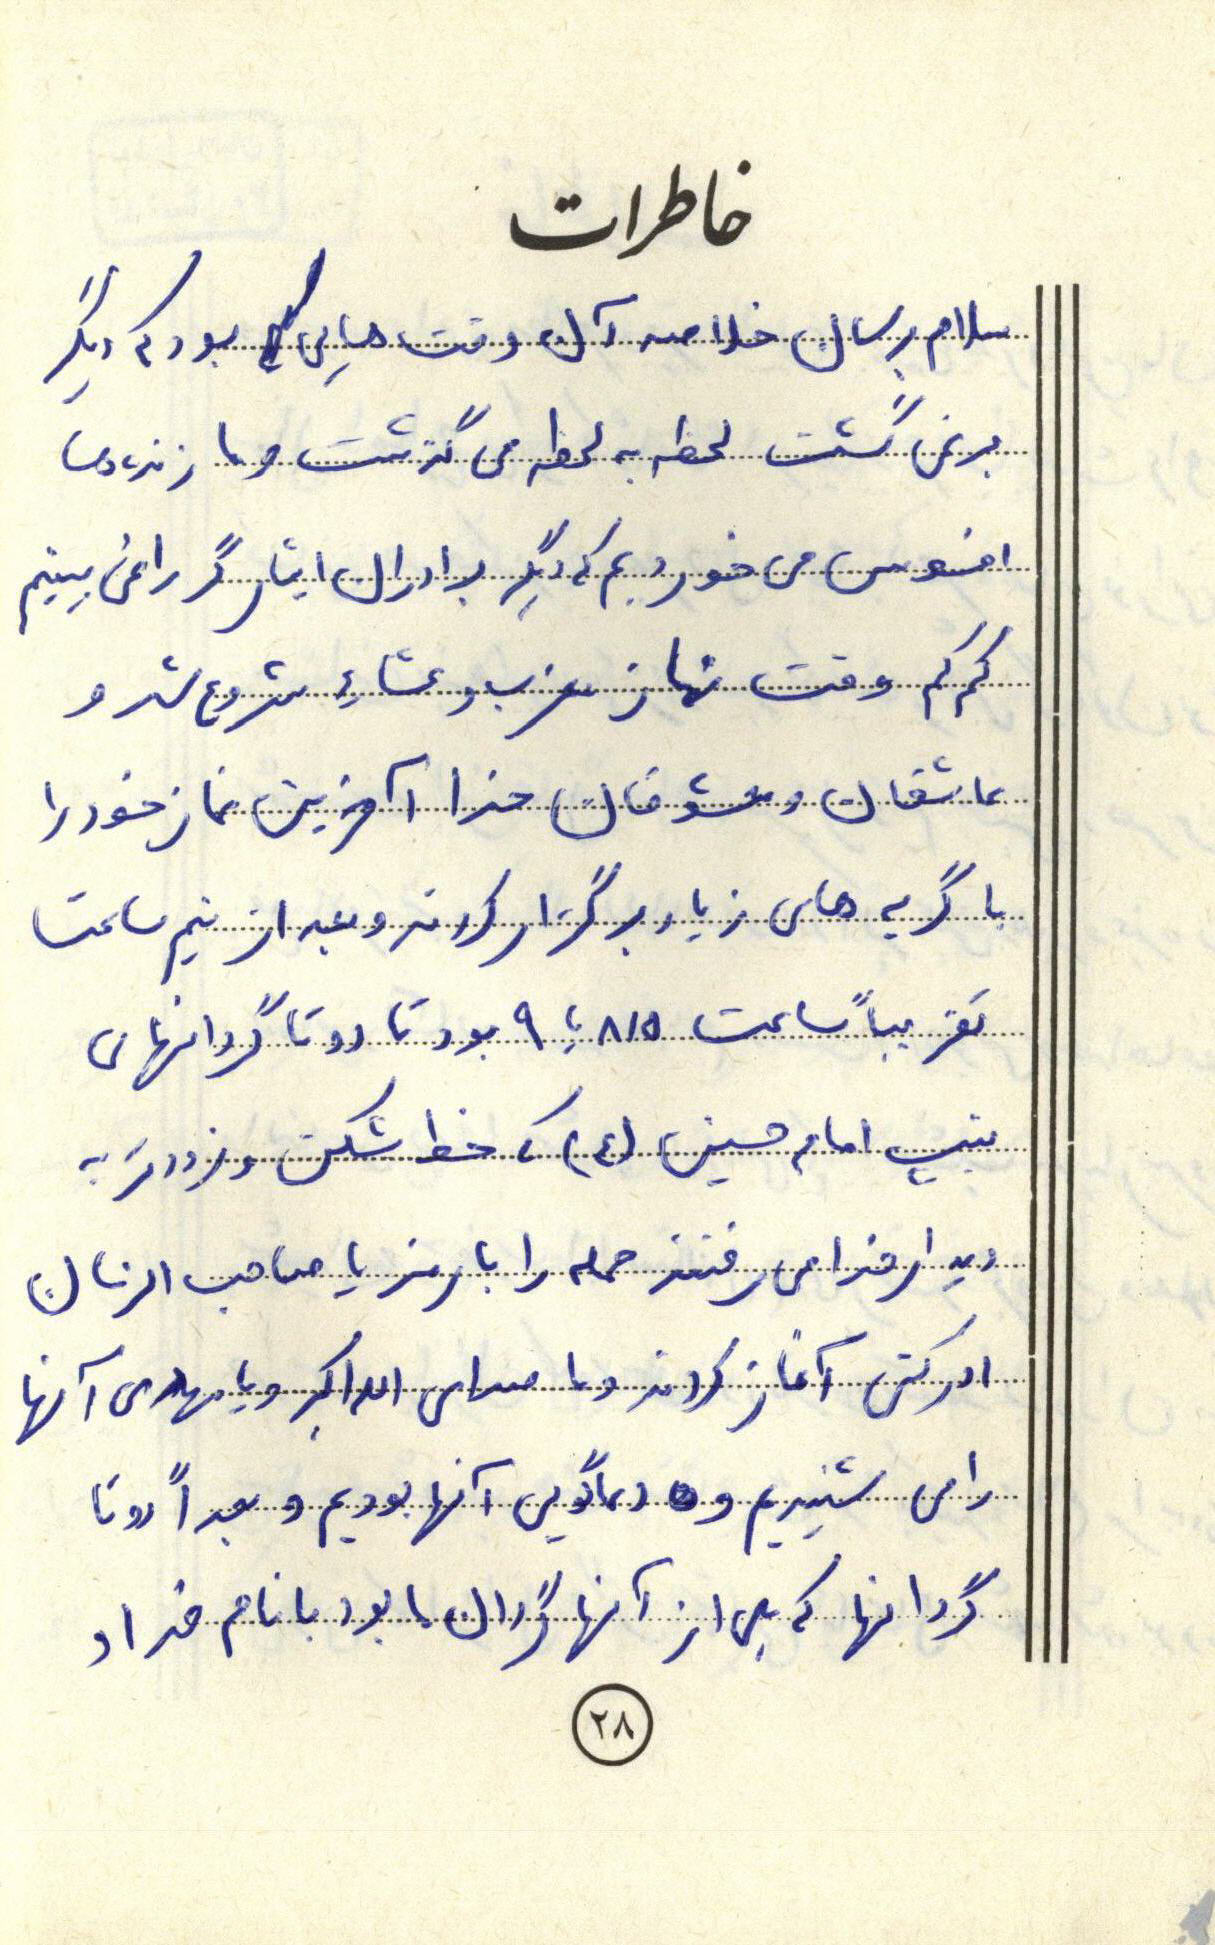 خاطرات
سلام برسان خلاصه آن وقت هایی بود که دیگر
بر نمی گشت لحظه به لحظه می گذشت و ما زنده ها
افسوس می خوردیم که دیگر برادران ایثارگر را نمی بینیم
کم کم وقت نماز مغرب و عشاء شروع شد و
عاشقان و معشوقان خدا آخرین نماز خود را
با گریه های زیاد برگزار کردند و بعد از نیم ساعت
تقریباً ساعت ۸/۵ یا ۹ بود تا دو تا گردانهای
تیپ امام حسین (ع) که خط شکن و زودتر به
دیدار خدا می رفتند حمله را با رمز یا صاحب الزمان
ادرکنی آغاز کردند و ما صدای الله اکبر و یا مهدی آنها
را می شنیدیم و دعاگویی آنها بودیم و بعداً دو تا
گردانها که یکی از آنها گردان ما بود با نام
۲۸